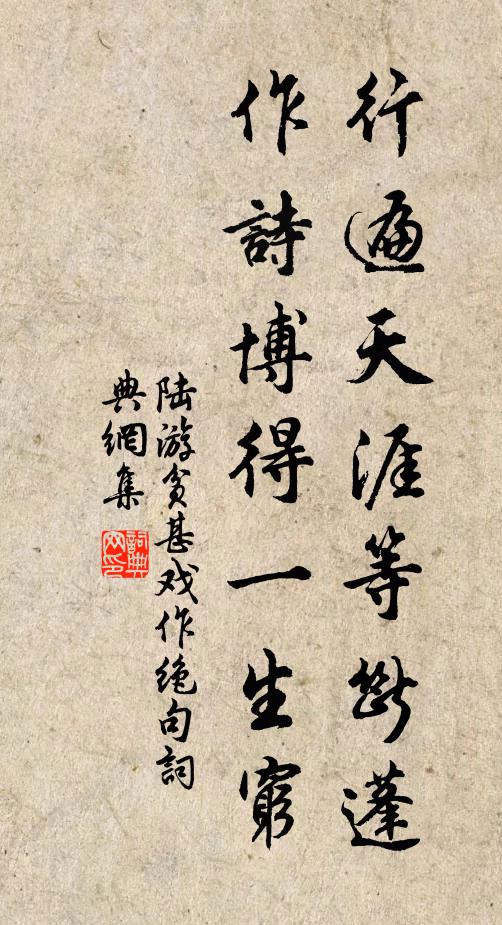 行遍天涯等断蓬
作詩博得一生窮
陆游贫甚戏作绝句詞
典網集
詞典
网印